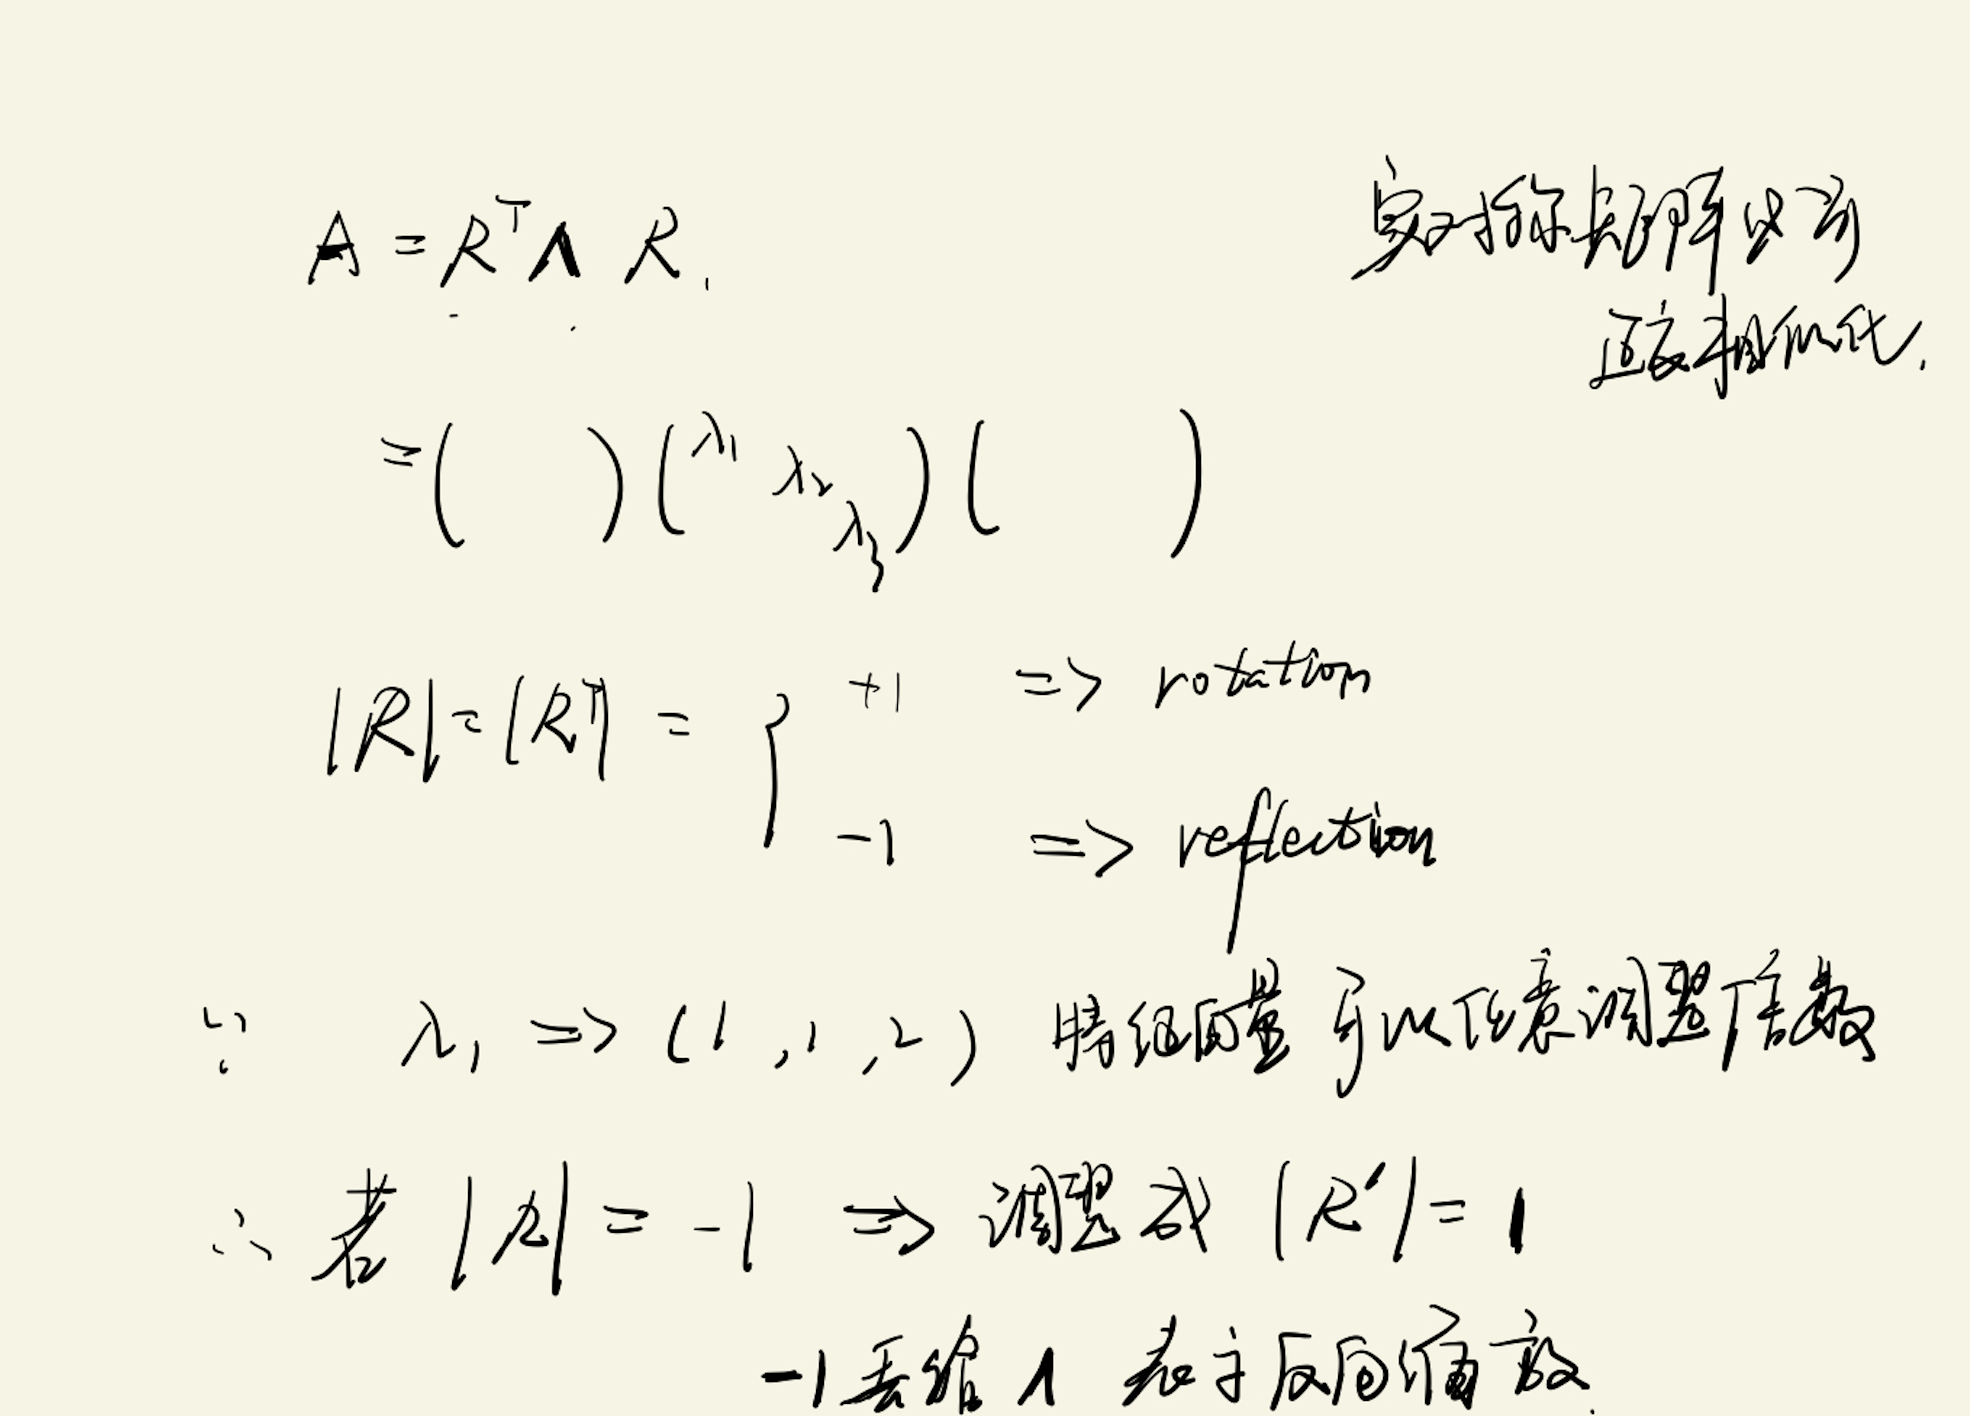 A = Rᵀ Λ R.
实对称矩阵必可
正交相似化.
= (   ) (λ₁ λ₂ λ₃) (   )
|R| = |Rᵀ| = { +1 => rotation
-1 => reflection
∵ λ₁ => (1, 1, 2) 特征向量可以任意调整倍数
∴ 若 |R| = -1 => 调整成 |R′| = 1
-1丢给 Λ 表示反向缩放.